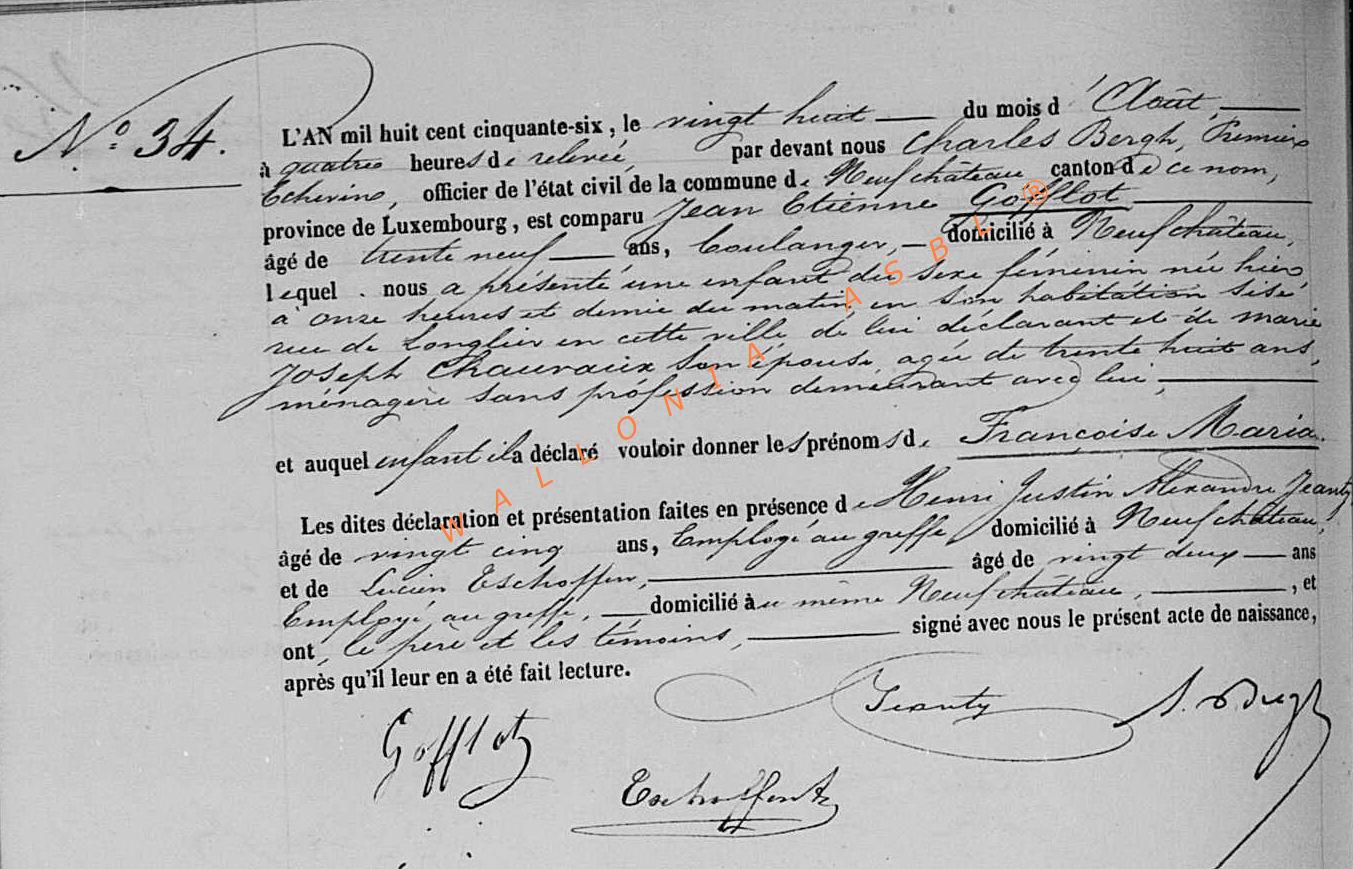 N° 34.
L'AN mil huit cent cinquante-six, le vingt huit du mois d'Août,
à quatre heures de relevée, par devant nous Charles Bergh, Premier
Echevine, officier de l'état civil de la commune de Neufchâteau, canton de ce nom,
province de Luxembourg, est comparu Jean Etienne Gofflot
âgé de trente neuf ans, boulanger, domicilié à Neufchâteau,
lequel nous a présenté une enfant du sexe féminin née hier
à onze heures et demie du matin, en son habitation sise
rue de Longlier en cette ville, de lui déclarant et de marie
Joseph Chauvaux son épouse, agée de trente huit ans,
ménagère sans profession demeurant avec lui,
et auquel enfant il a déclaré vouloir donner les prénoms de Françoise Maria.
Les dites déclaration et présentation faites en présence de Henri Justin Alexandre Jeanty
âgé de vingt cinq ans, Employé au greffe, domicilié à Neufchâteau,
et de Lucien Eschoffen, âgé de vingt deux ans
Employé au greffe, domicilié au même Neufchâteau, , et
ont, le père et les témoins, signé avec nous le présent acte de naissance,
après qu'il leur en a été fait lecture.
Jeanty
Gofflot
WALLONIA ASBL ®